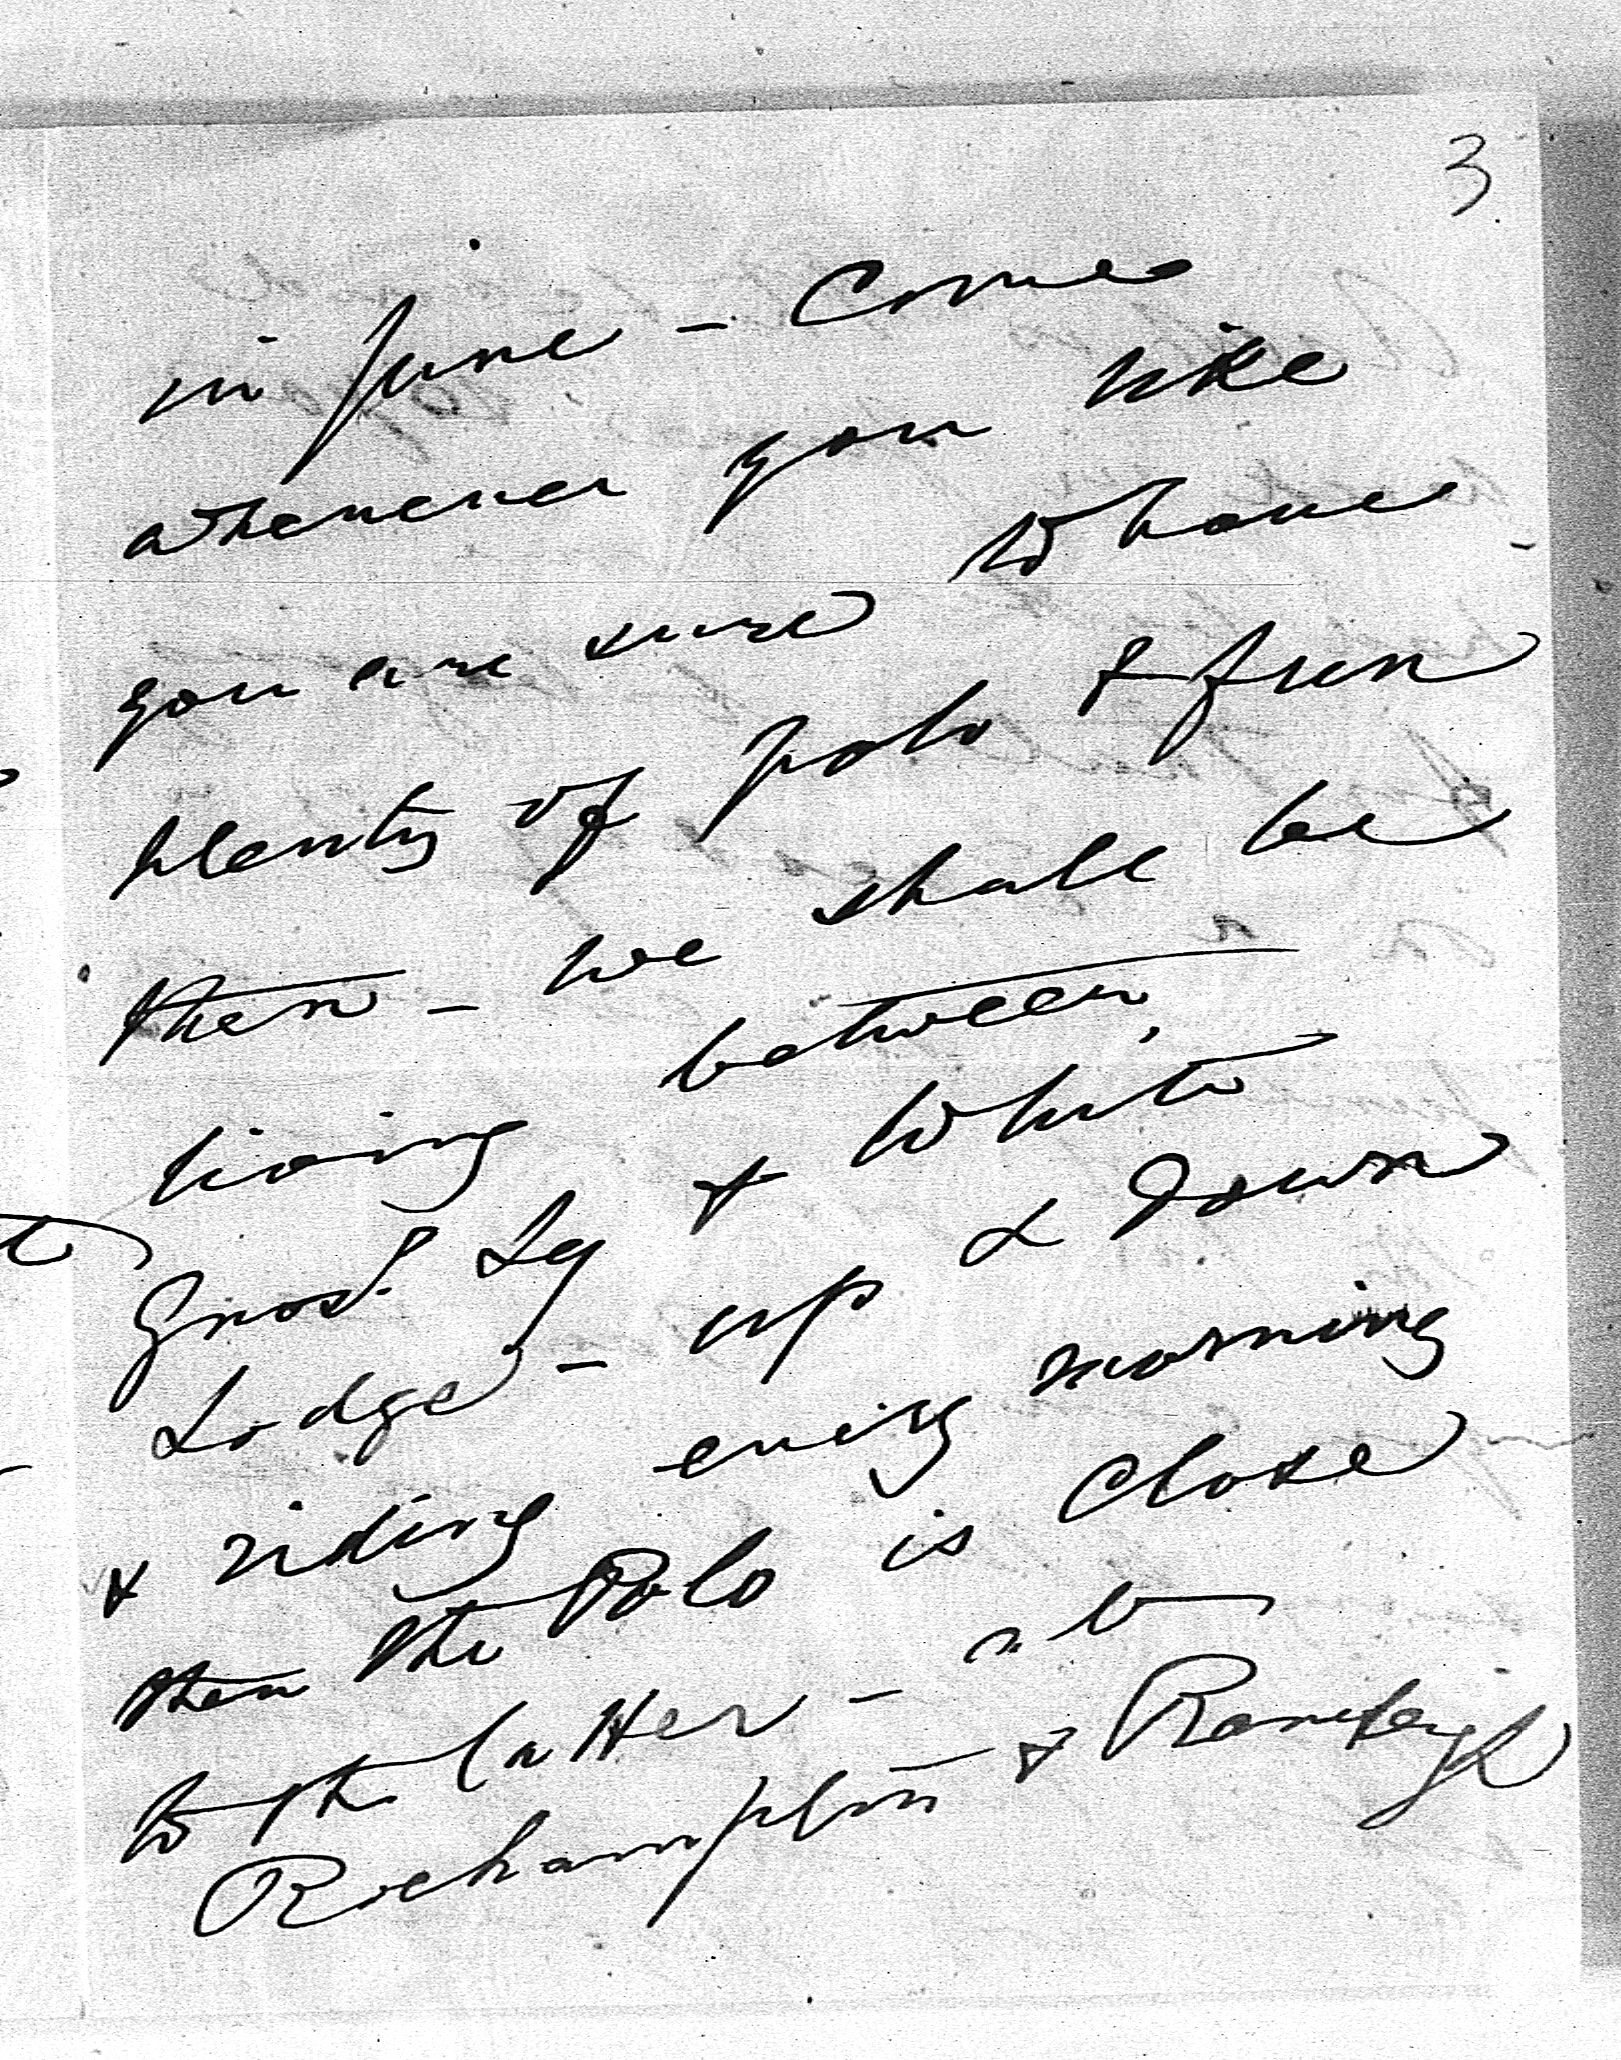 3
in June - Come
whenever you like
you are sure to have
plenty of polo & fun
then - we shall be
living between
Gros. Sq & White
Lodge - up & down
& riding every morning
then the Polo is close
to the latter - at
Roehampton & Ranelagh